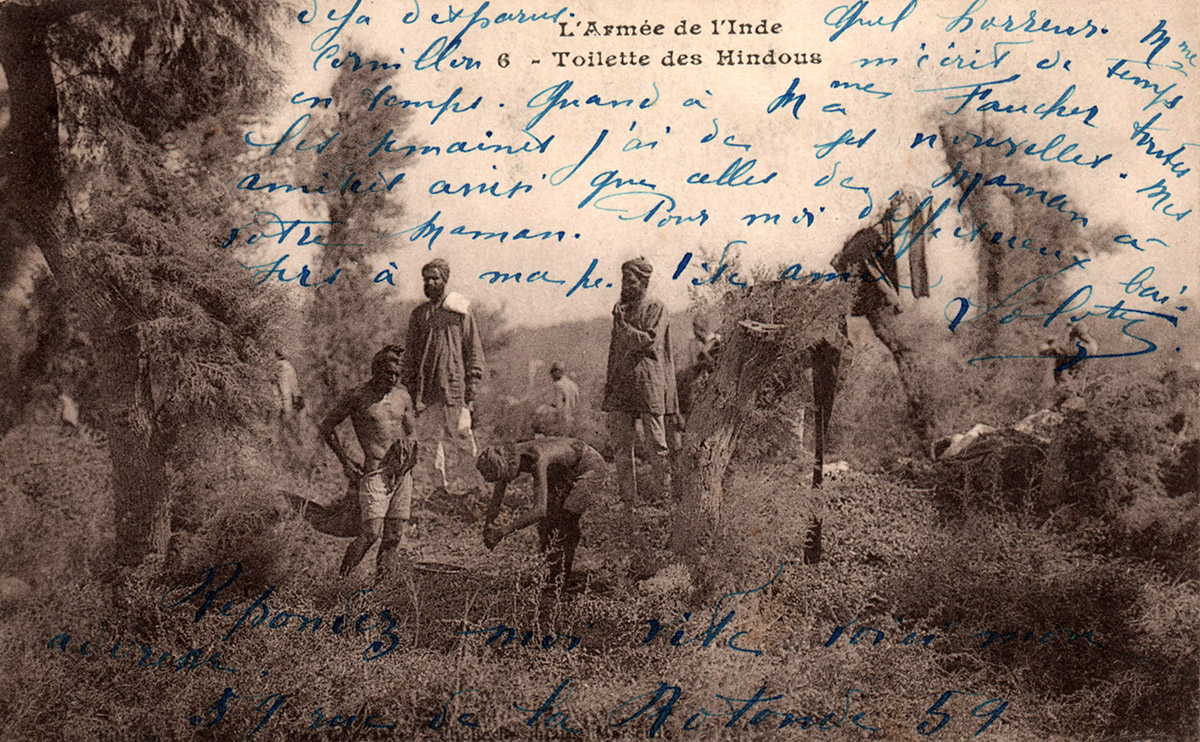 déjà disparus. Quel horreur. Mme
L'Armée de l'Inde
6 - Toilette des Hindous
Cornillon m'écrit de temps
en temps. Quand à Mmes Faucher toutes
les semaines j'ai de ses nouvelles. Mes
amitiés ainsi que celles de Maman à
votre Maman. Pour moi d'affectueux bai
sers à ma pe. Vôtre amie
Lolotte
Répondez-moi vite voici mon
adresse.
59 rue de la Rotonde 59